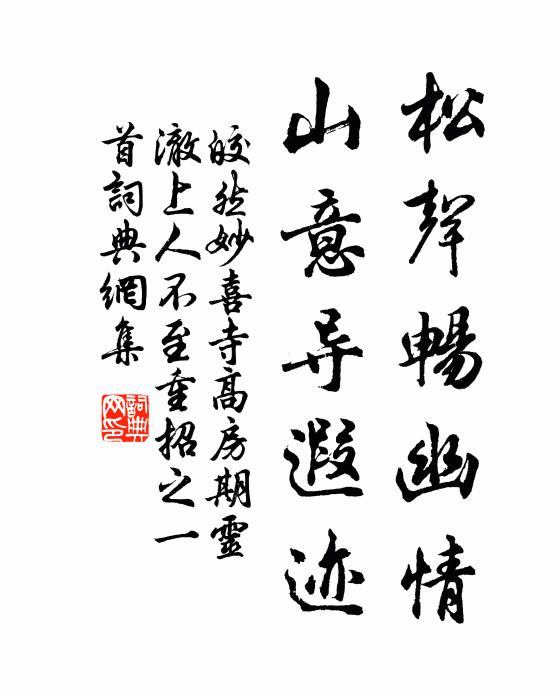 松聲暢幽情
山意导遐迹
皎然妙喜寺高房期靈
澈上人不至重招之一
首詞典網集
詞典
网印